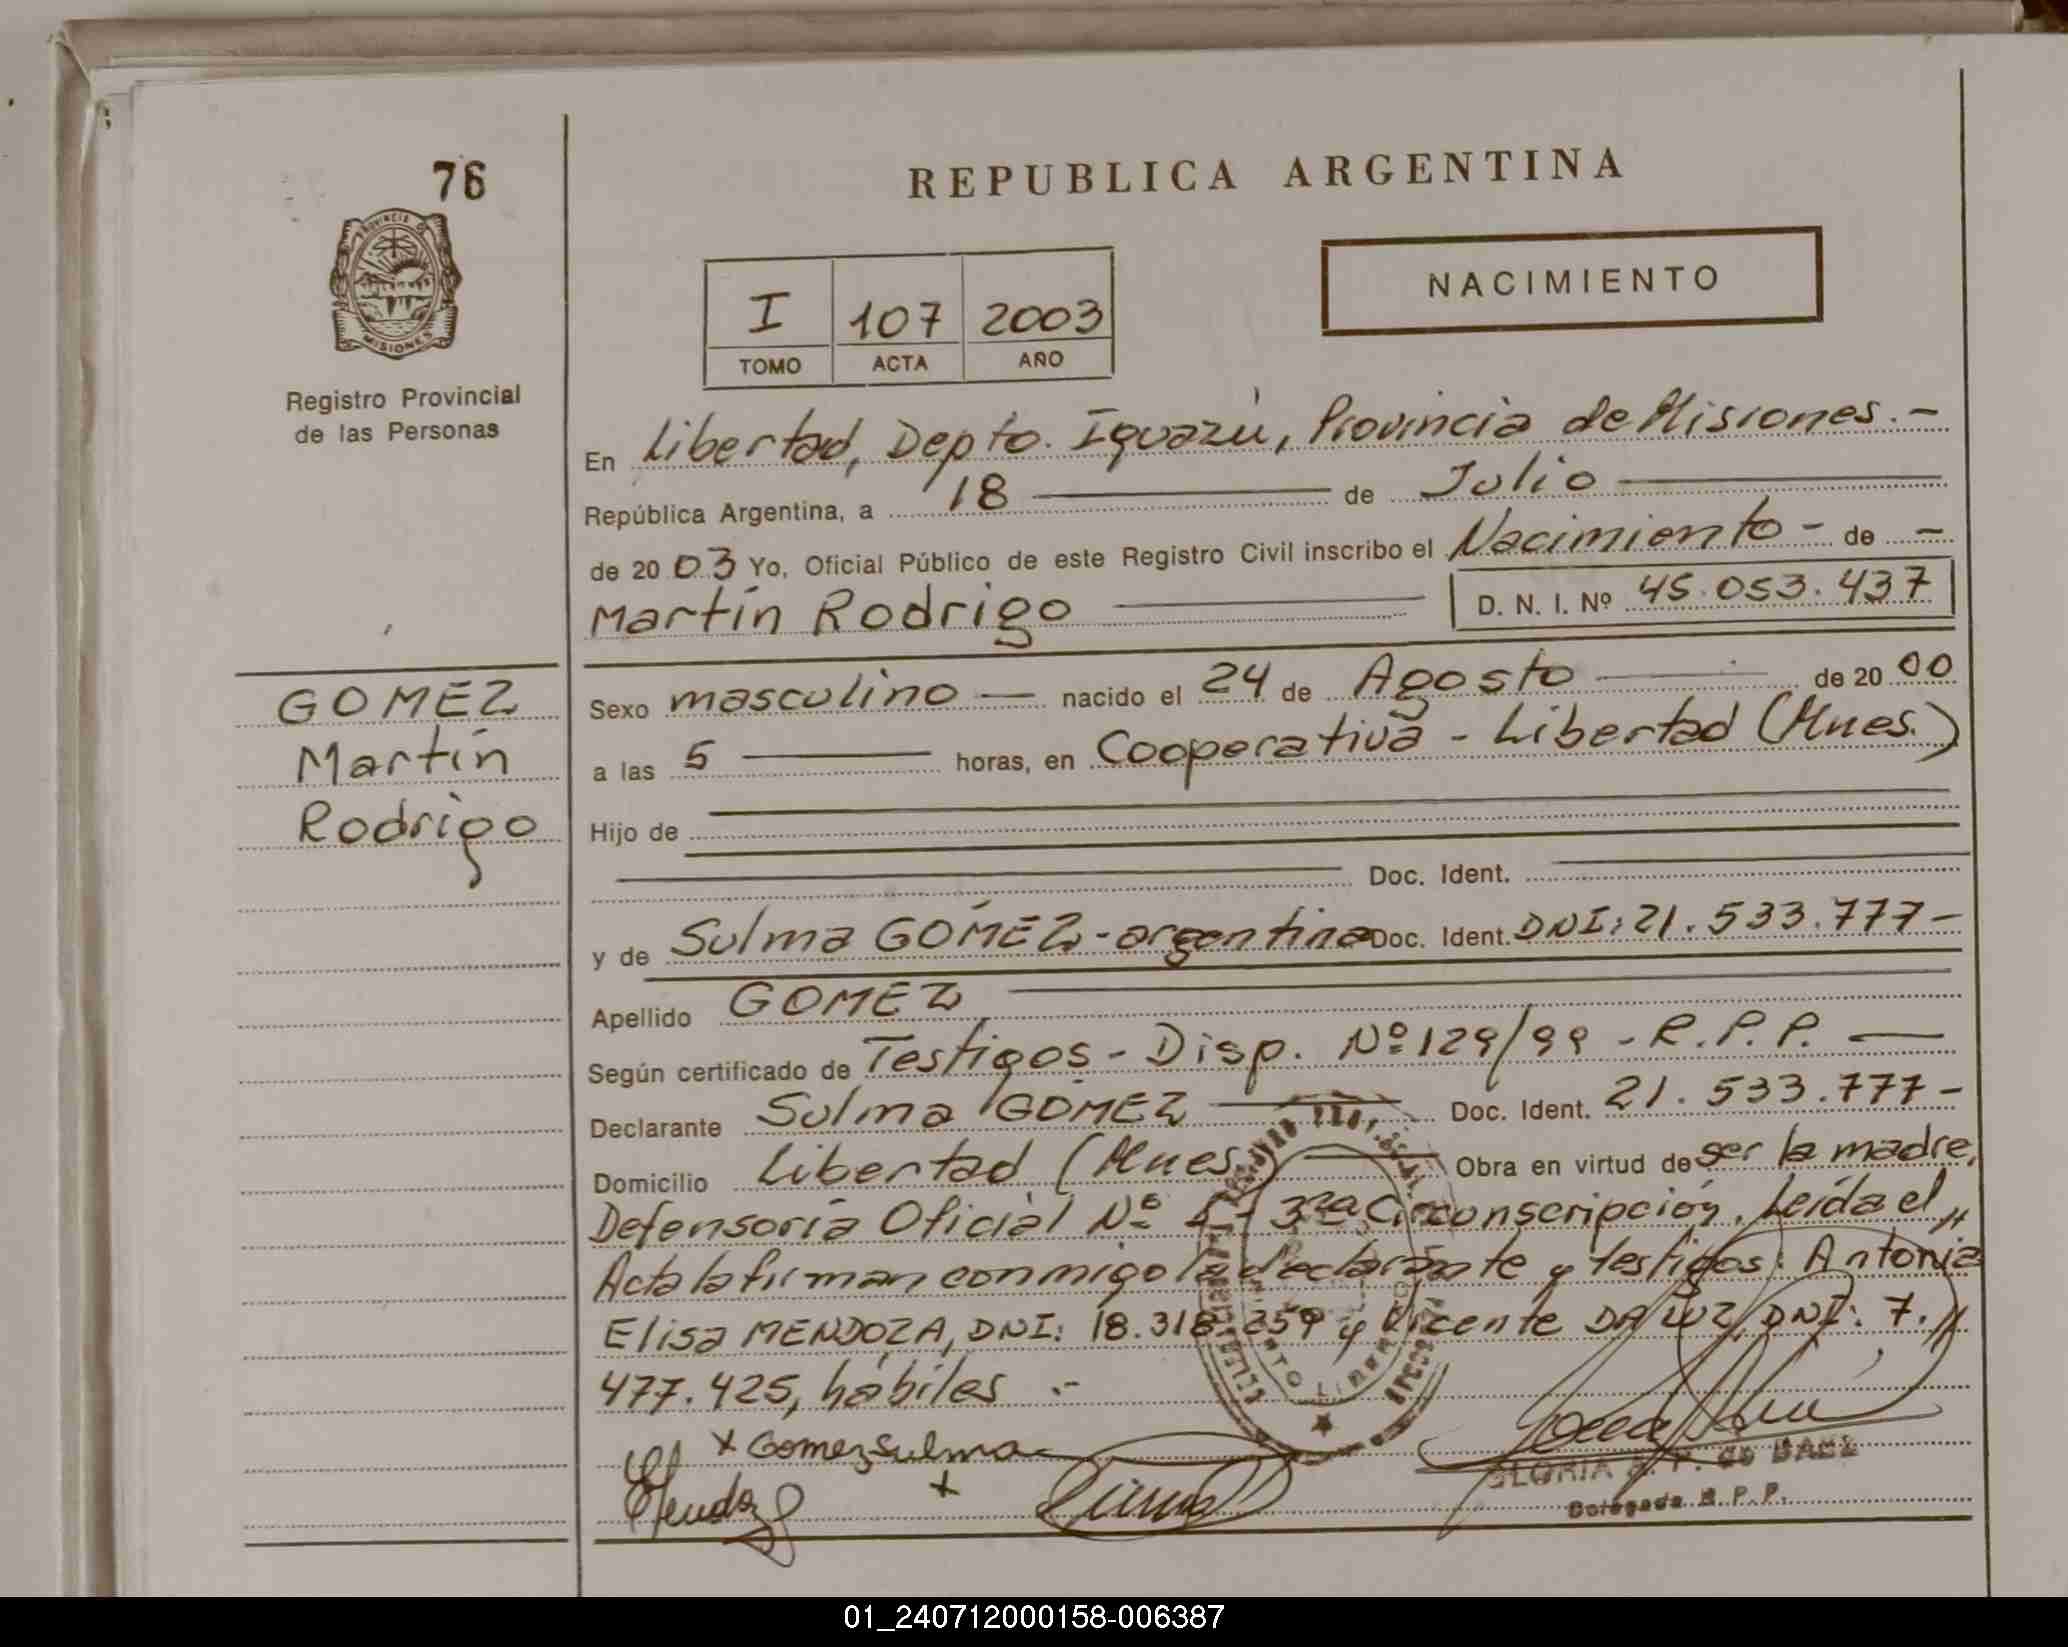 76
REPUBLICA ARGENTINA
NACIMIENTO
I 107 2003
TOMO ACTA AÑO
PROVINCIA DE
MISIONES
Registro Provincial
de las Personas
En Libertad, Depto. Iguazú, Provincia de Misiones.-
República Argentina, a 18 de Julio
de 2003 Yo, Oficial Público de este Registro Civil inscribo el Nacimiento - de -
Martín Rodrigo D. N. I. Nº 45.053.437
GOMEZ
Martín
Rodrigo
Sexo masculino - nacido el 24 de Agosto de 2000
a las 5 horas, en Cooperativa - Libertad (Mnes.)
Hijo de
Doc. Ident.
y de Sulma GOMEZ - argentina Doc. Ident. DNI: 21.533.777-
Apellido GOMEZ
Según certificado de Testigos - Disp. Nº 129/99 - R.P.P. -
Declarante Sulma GOMEZ Doc. Ident. 21.533.777-
Domicilio Libertad (Mnes.) Obra en virtud de ser la madre,
Defensoría Oficial Nº 3ra Circonscripción. Leída el,,
Acta la firman conmigo la declarante y testigos: Antonia
Elisa MENDOZA, DNI: 18.318.259 y Vicente DA LUZ, DNI: 7.//
477.425, hábiles .-
x Gomez Sulma
x
GLORIA de BAEZ
Delegada R.P.P.
01_240712000158-006387